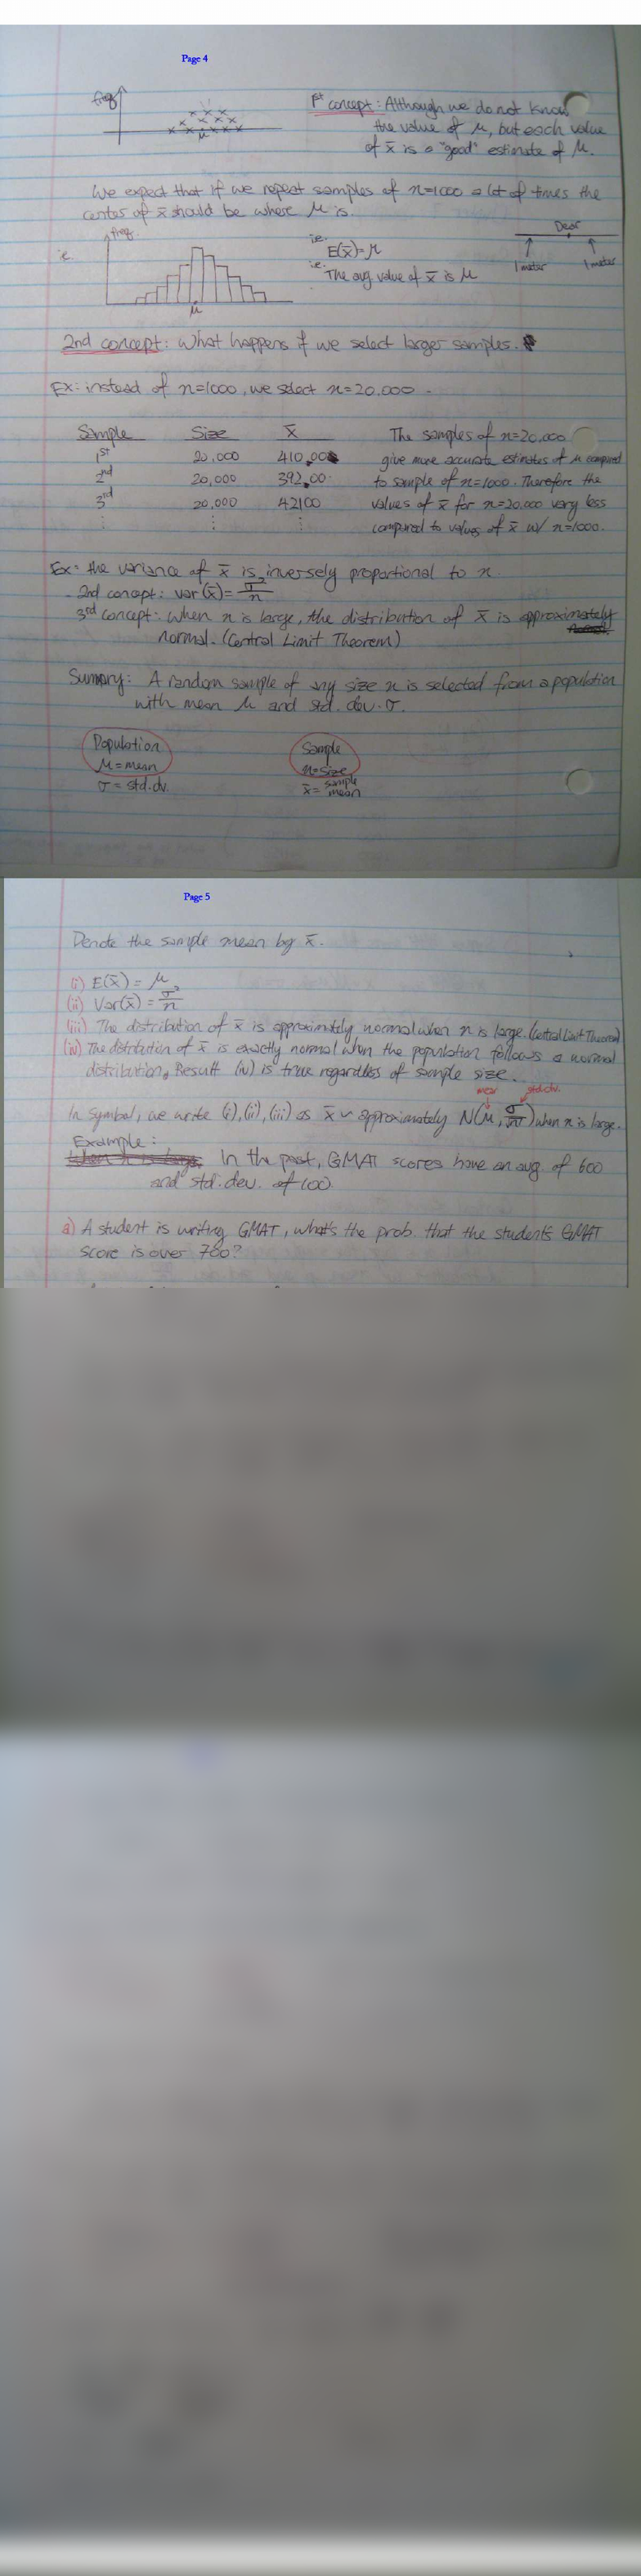 Page 4
freq
μ
1st concept: Although we do not know
the value of μ, but each value
of x̄ is a "good" estimate of μ.
We expect that if we repeat samples of n=1000 a lot of times the
center of x̄ should be where μ is.
i.e.
freq
μ
i.e. E(x̄)=μ
i.e. The avg value of x̄ is μ
Dear
1 meter
1 meter
2nd concept: What happens if we select larger samples.
Ex: instead of n=1000, we select n=20,000.
Sample Size x̄
1st 20,000 410,00
2nd 20,000 392,00
3rd 20,000 42100
⋮ ⋮ ⋮
The samples of n=20,000
give more accurate estimates of μ compared
to sample of n=1000. Therefore the
values of x̄ for n=20,000 vary less
compared to values of x̄ w/ n=1000.
Ex: the variance of x̄ is inversely proportional to n.
- 2nd concept: var(x̄)= σ²/n
3rd concept: When n is large, the distribution of x̄ is approximately
normal. (Central Limit Theorem)
Summary: A random sample of any size n is selected from a population
with mean μ and std. dev. σ.
Population
μ = mean
σ = std. dv.
Sample
n=size
x̄ = sample mean
Page 5
Denote the sample mean by x̄.
(i) E(x̄) = μ
(ii) Var(x̄) = σ²/n
(iii) The distribution of x̄ is approximately normal when n is large. (Central Limit Theorem)
(iv) The distribution of x̄ is exactly normal when the population follows a normal
distribution, Result (iv) is true regardless of sample size.
mean std.dv.
In symbol, we write (i), (ii), (iii) as x̄ ~ approximately N(μ, σ/√n) when n is large.
Example:
When n is large, In the past, GMAT scores have an avg. of 600
and std. dev. of 100.
a) A student is writing GMAT, what's the prob. that the student's GMAT
score is over 700?